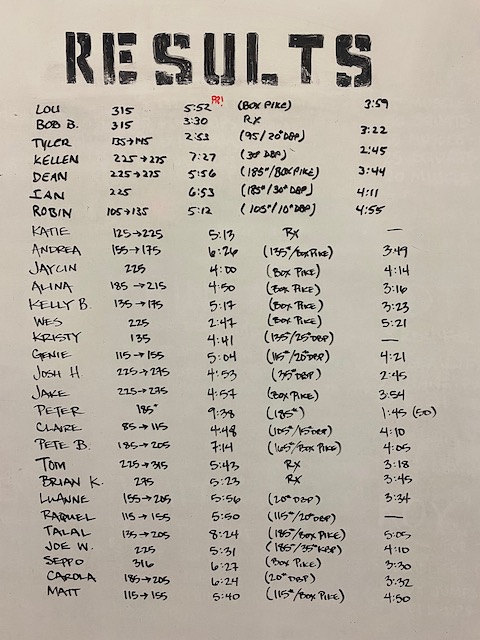 RESULTS
LOU 315 5:52 PR! (BOX PIKE) 3:59
BOB B. 315 3:30 RX
TYLER 135→145 2:53 (95/20#DBP) 3:22
KELLEN 225→275 7:27 (30#DBP) 2:45
DEAN 225→275 5:56 (185#/BOXPIKE) 3:44
IAN 225 6:53 (185#/30#DBP) 4:11
ROBIN 105→135 5:12 (105#/10#DBP) 4:55
KATIE 125→225 5:13 RX —
ANDREA 155→175 6:26 (135#/BOXPIKE) 3:49
JAYLIN 225 4:00 (BOX PIKE) 4:14
ALINA 185→215 4:50 (BOX PIKE) 3:16
KELLY B. 135→175 5:17 (BOX PIKE) 3:23
WES 225 2:47 (BOX PIKE) 5:21
KRISTY 135 4:41 (135#/25#DBP) —
GENIE 115→155 5:04 (115#/20#DBP) 4:21
JOSH H 225→275 4:53 (35#DBP) 2:45
JAKE 225→275 4:57 (BOX PIKE) 3:54
PETER 185# 9:38 (185#) 1:45 (50)
CLAIRE 85→115 4:48 (105#/15#DBP) 4:10
PETE B. 185→205 7:14 (165#/BOX PIKE) 4:05
TOM 225→315 5:43 RX 3:18
BRIAN K. 275 5:23 RX 3:45
LUANNE 155→205 5:56 (20#DBP) 3:34
RAQUEL 115→155 5:50 (115#/20#DBP) —
TALAL 135→205 8:24 (185#/BOX PIKE) 5:05
JOE W. 225 5:31 (185#/35#KBP) 4:10
SEPPO 316 6:27 (BOX PIKE) 3:30
CAROLA 185→205 6:24 (20#DBP) 3:32
MATT 115→155 5:40 (115#/BOX PIKE) 4:50